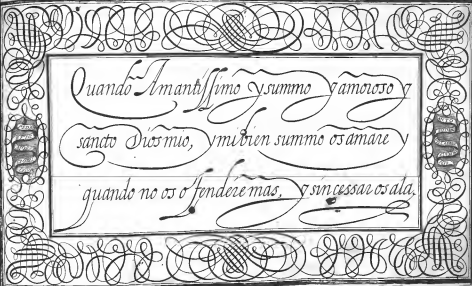 Quando Amantissimo y summo y amoroso y
sancto Dios mio, y mi bien summo os amare y
quando no os offendere mas, y sin cessar os ala.